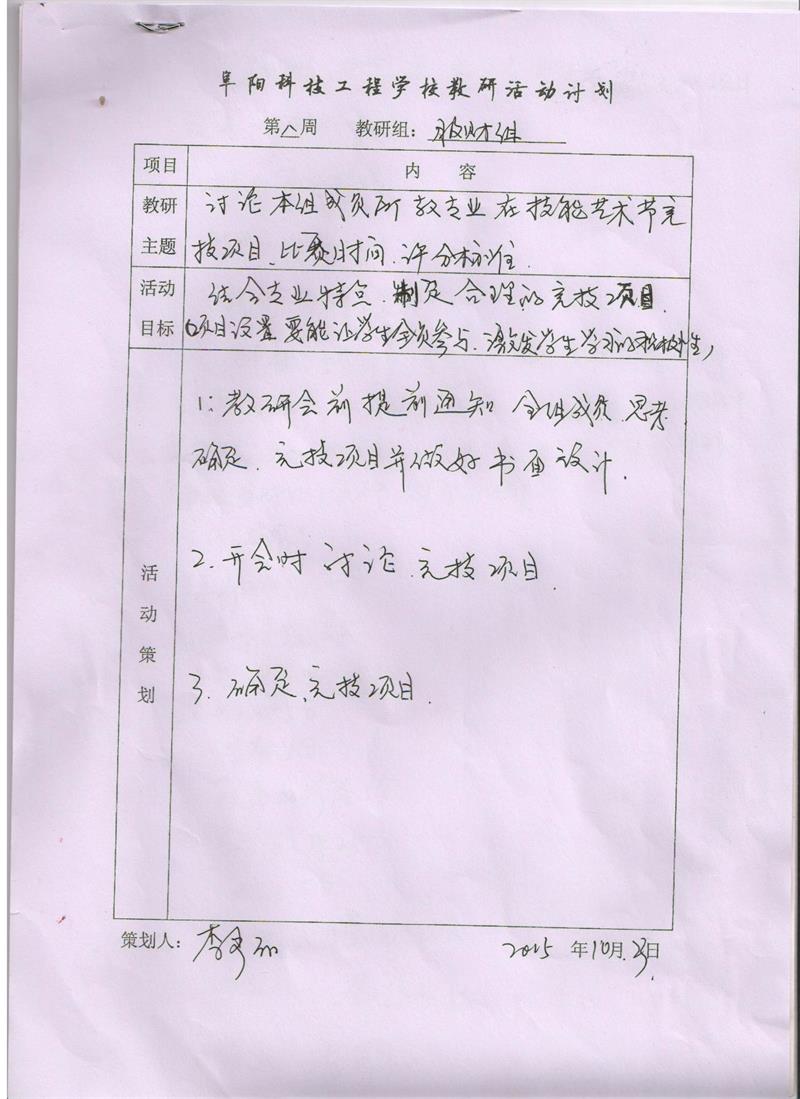 阜阳科技工程学校教研活动计划
第八周 教研组：服财组
项目 内 容
教研主题 讨论本组成员所教专业在技能艺术节竞
技项目、比赛时间、评分标准.
活动目标 结合专业特点、制定合理的竞技项目.
项目设置要能让学生全员参与、激发学生学习的积极性,
活动策划
1: 教研会前提前通知全组成员思考
确定、竞技项目并做好书面设计.
2. 开会时讨论、竞技项目.
3. 确定、竞技项目.
策划人： 李
2015 年10月23日